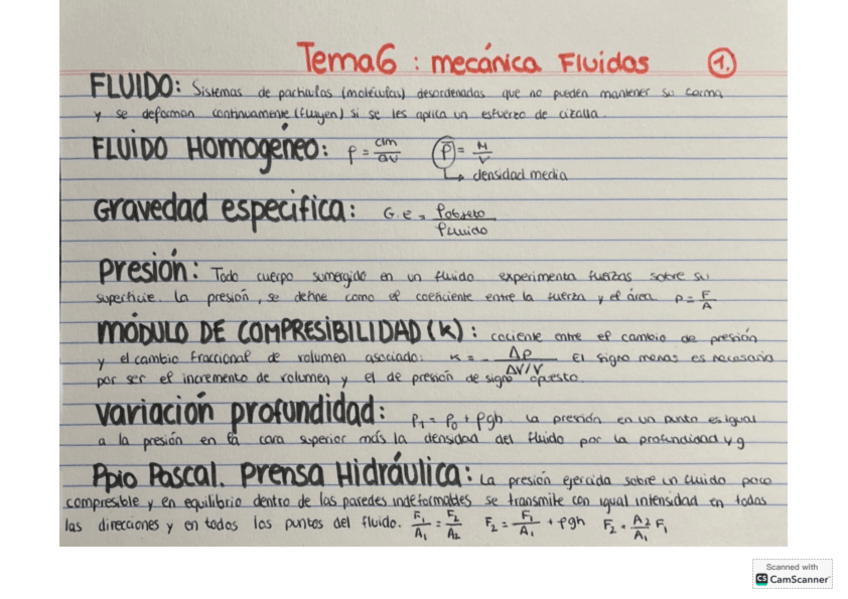 Tema 6 : mecánica Fluidos 1.
FLUIDO: Sistemas de partículas (moléculas) desordenadas que no pueden mantener su forma
y se deforman continuamente (fluyen) si se les aplica un esfuerzo de cizalla.
FLUIDO Homogéneo: ρ = dm/dV ρ̅ = M/V
↳ densidad media
Gravedad especifica: G.e = ρobjeto/ρfluido
Presión: Todo cuerpo sumergido en un fluido experimenta fuerzas sobre su
superficie. La presión, se define como el coeficiente entre la fuerza y el área P = F/A
MÓDULO DE COMPRESIBILIDAD (K): cociente entre el cambio de presión
y el cambio fraccional de volumen asociado: K = - ΔP/ΔV/V El signo menos es necesario
por ser el incremento de volumen y el de presión de signo opuesto.
Variación profundidad: P₁ = P₀ + ρgh. La presión en un punto es igual
a la presión en la cara superior más la densidad del fluido por la profundidad y g
Ppio Pascal. Prensa Hidráulica: La presión ejercida sobre un fluido poco
compresible y en equilibrio dentro de las paredes indeformables se transmite con igual intensidad en todas
las direcciones y en todos los puntos del fluido. F₁/A₁ = F₂/A₂ F₂ = F₁/A₁ + ρgh F₂ = A₂/A₁ F₁
Scanned with
CS CamScanner